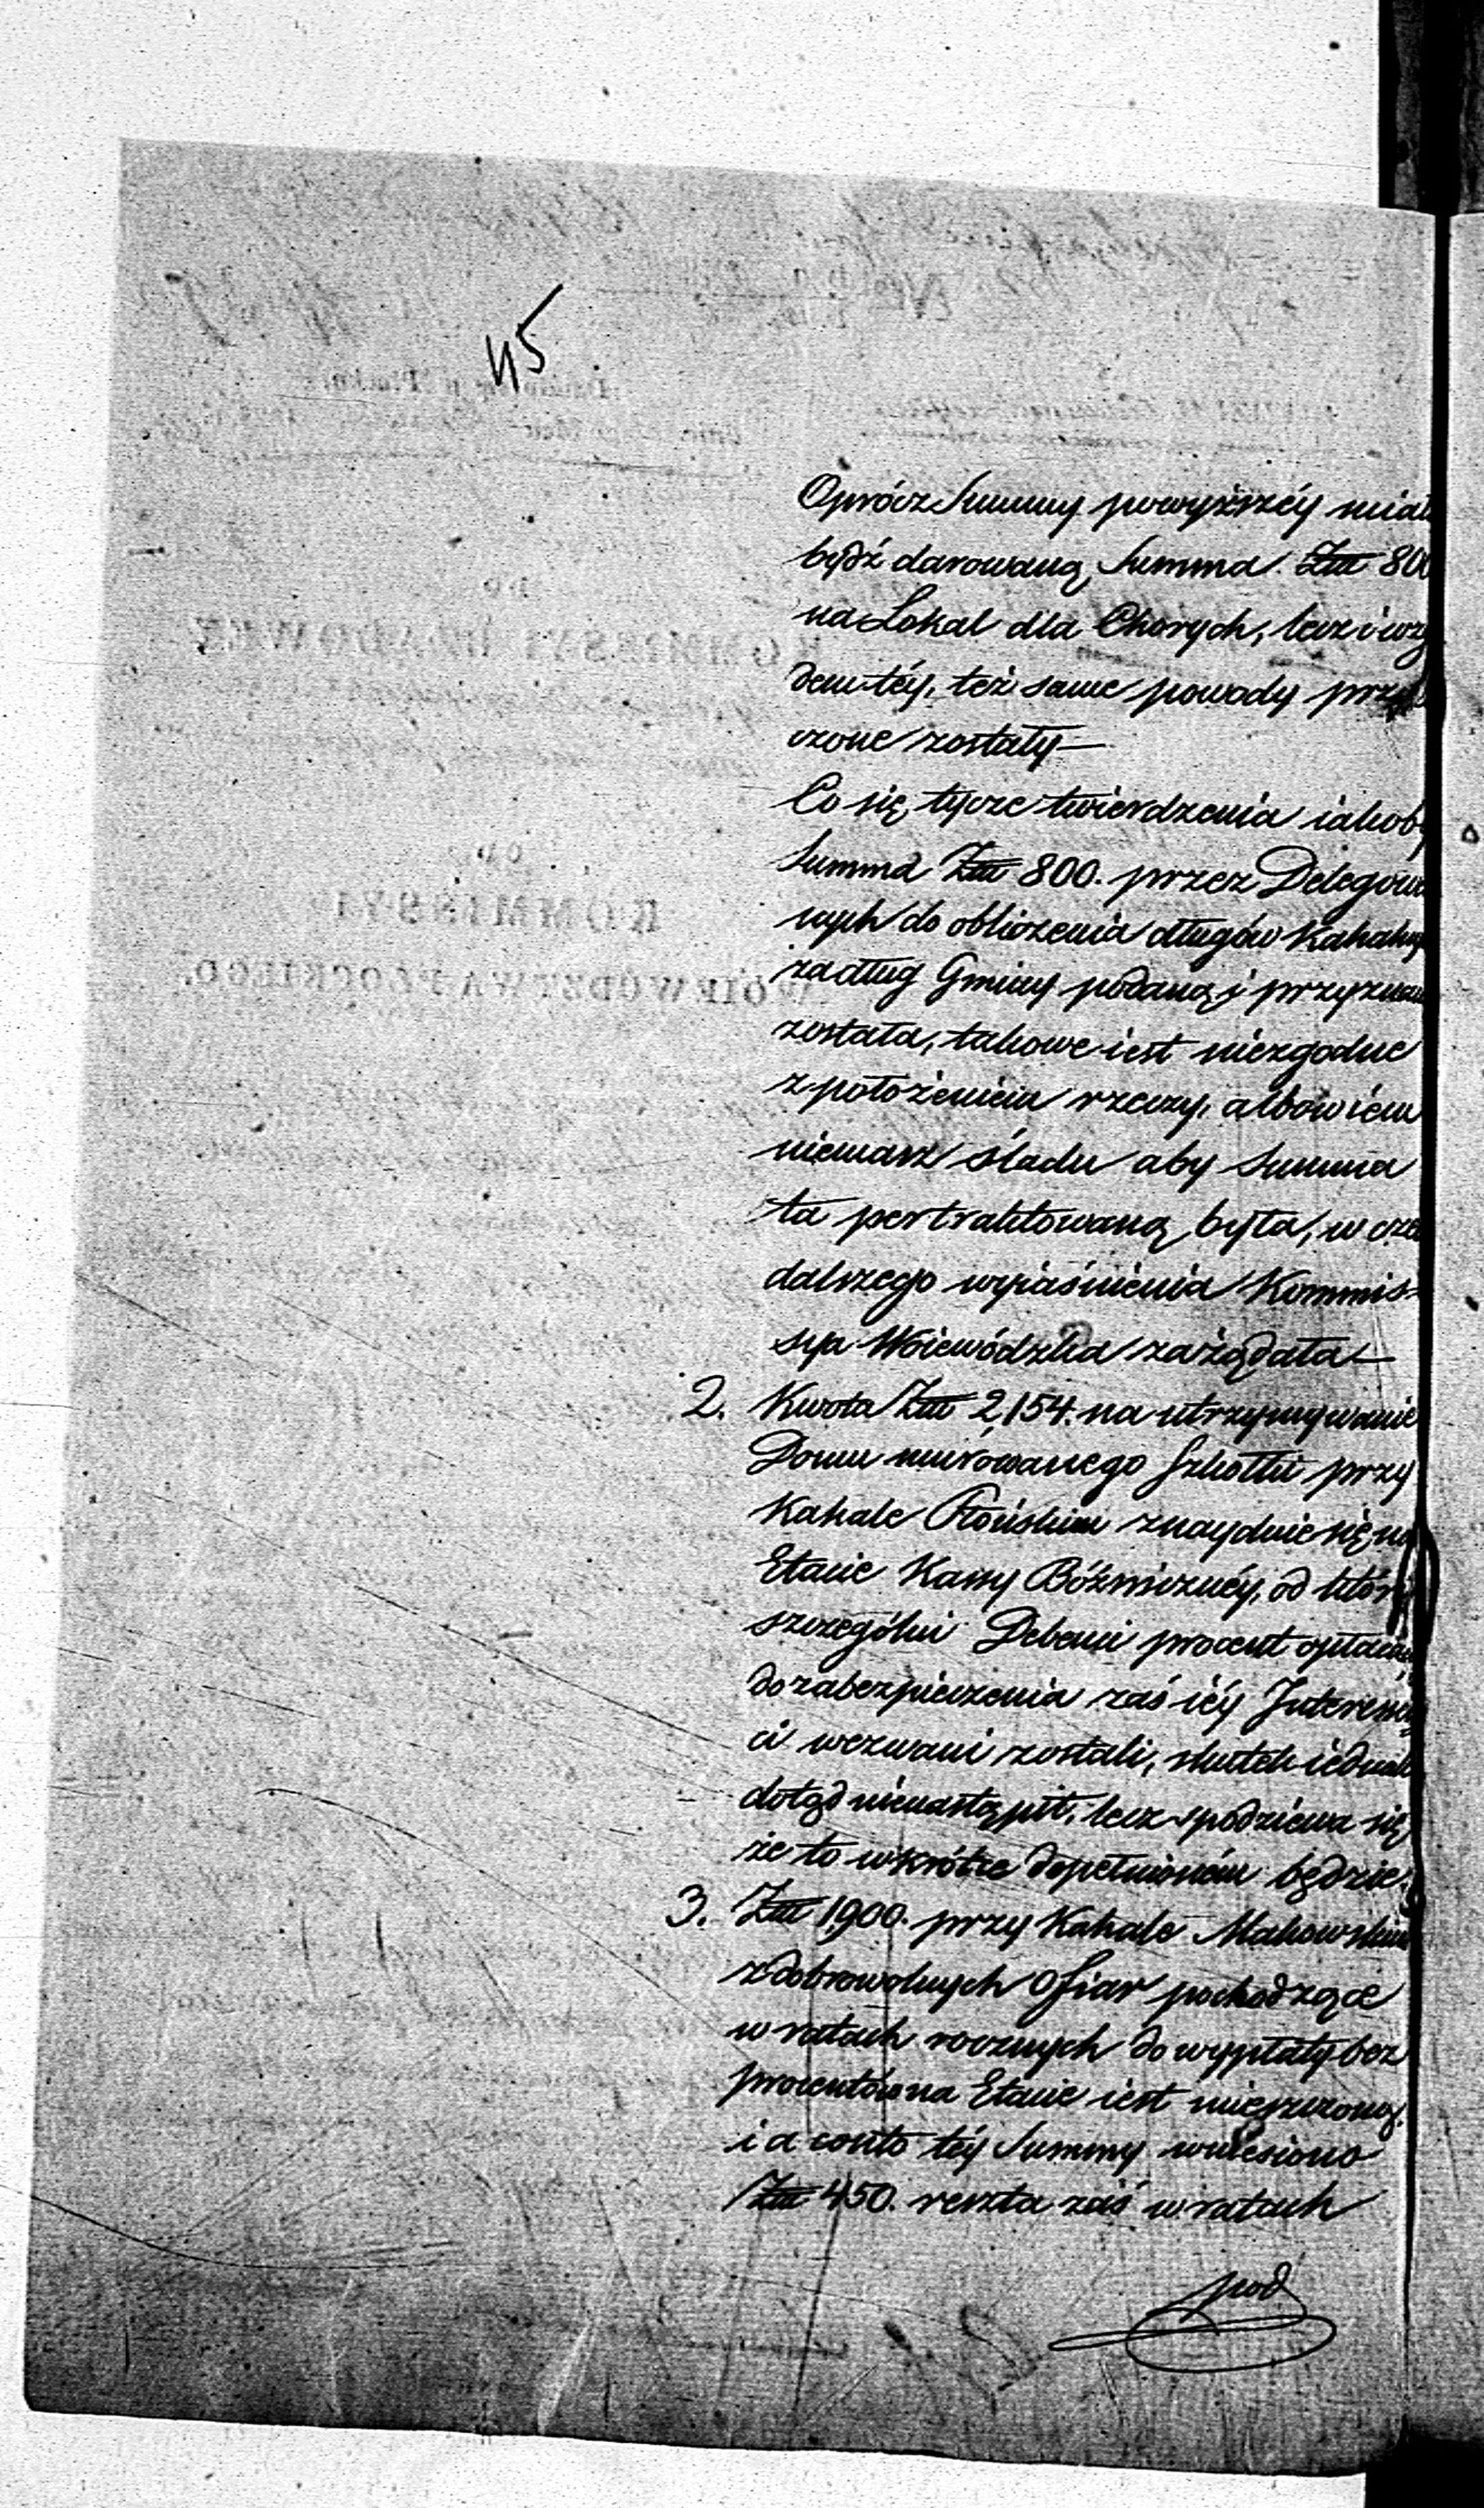 45
Oprócz Summy powyższéy miał
bydź darowaną Summa Złł 800
na Lokal dla Chorych, lecz i wzg
dem téy, też same powody przy
czone zostały —
Co się tycze twierdzenia iakoby
Summa Złł 800. przez Delegowa
nych do obliczenia długów Kahalny
za dług Gminy podaną i przyznan
została, takowe iest niezgodne
z położeniem rzeczy, albowiem
niemasz śladu aby Summa
ta pertraktowaną była, w cze
dalszego wyiaśnienia Kommis-
sya Woiewódzka zażądała —
2. Kwota Złł 2,154. na utrzymywanie
Domu murowanego Szkołki przy
Kahale Płońskim znayduie się na
Etacie Kassy Bóżnicznéy, od któr
szczególni Debenci procent opłacaią
do zabezpieczenia zaś iéy Interessen
ci wezwani zostali, skutek iednak
dotąd nienastąpił, lecz spodziewa się
że to wkrótce dopełnioném będzie.
3. Złł 1,900. przy Kahale Makowskim
z dobrowolnych Ofiar pochodzące
w ratach rocznych do wypłaty bez
procentów na Etacie iest mieszczoną,
i a conto téy Summy wniesiono
Złł 450. reszta zaś w ratach
pod